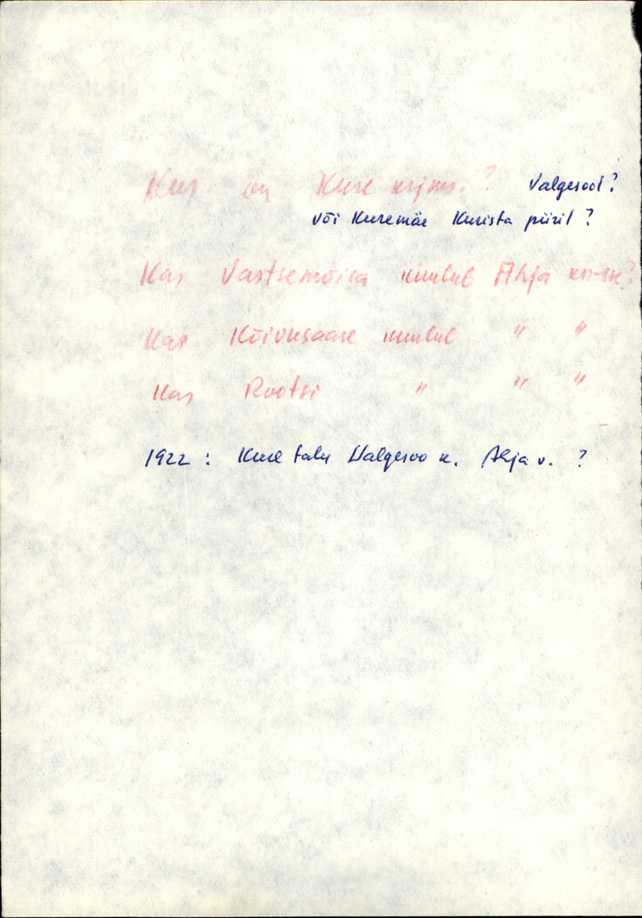 Kus on Kure krjms.? Valgesool?
või Kuremäe Kurista piiril?
Kas Vastsemõisa kuulub Ahja
Kas Kõivusaare kuulub " "
Kas Rootsi " " "
1922: Kure talu Walgesoo k. Ahja v. ?